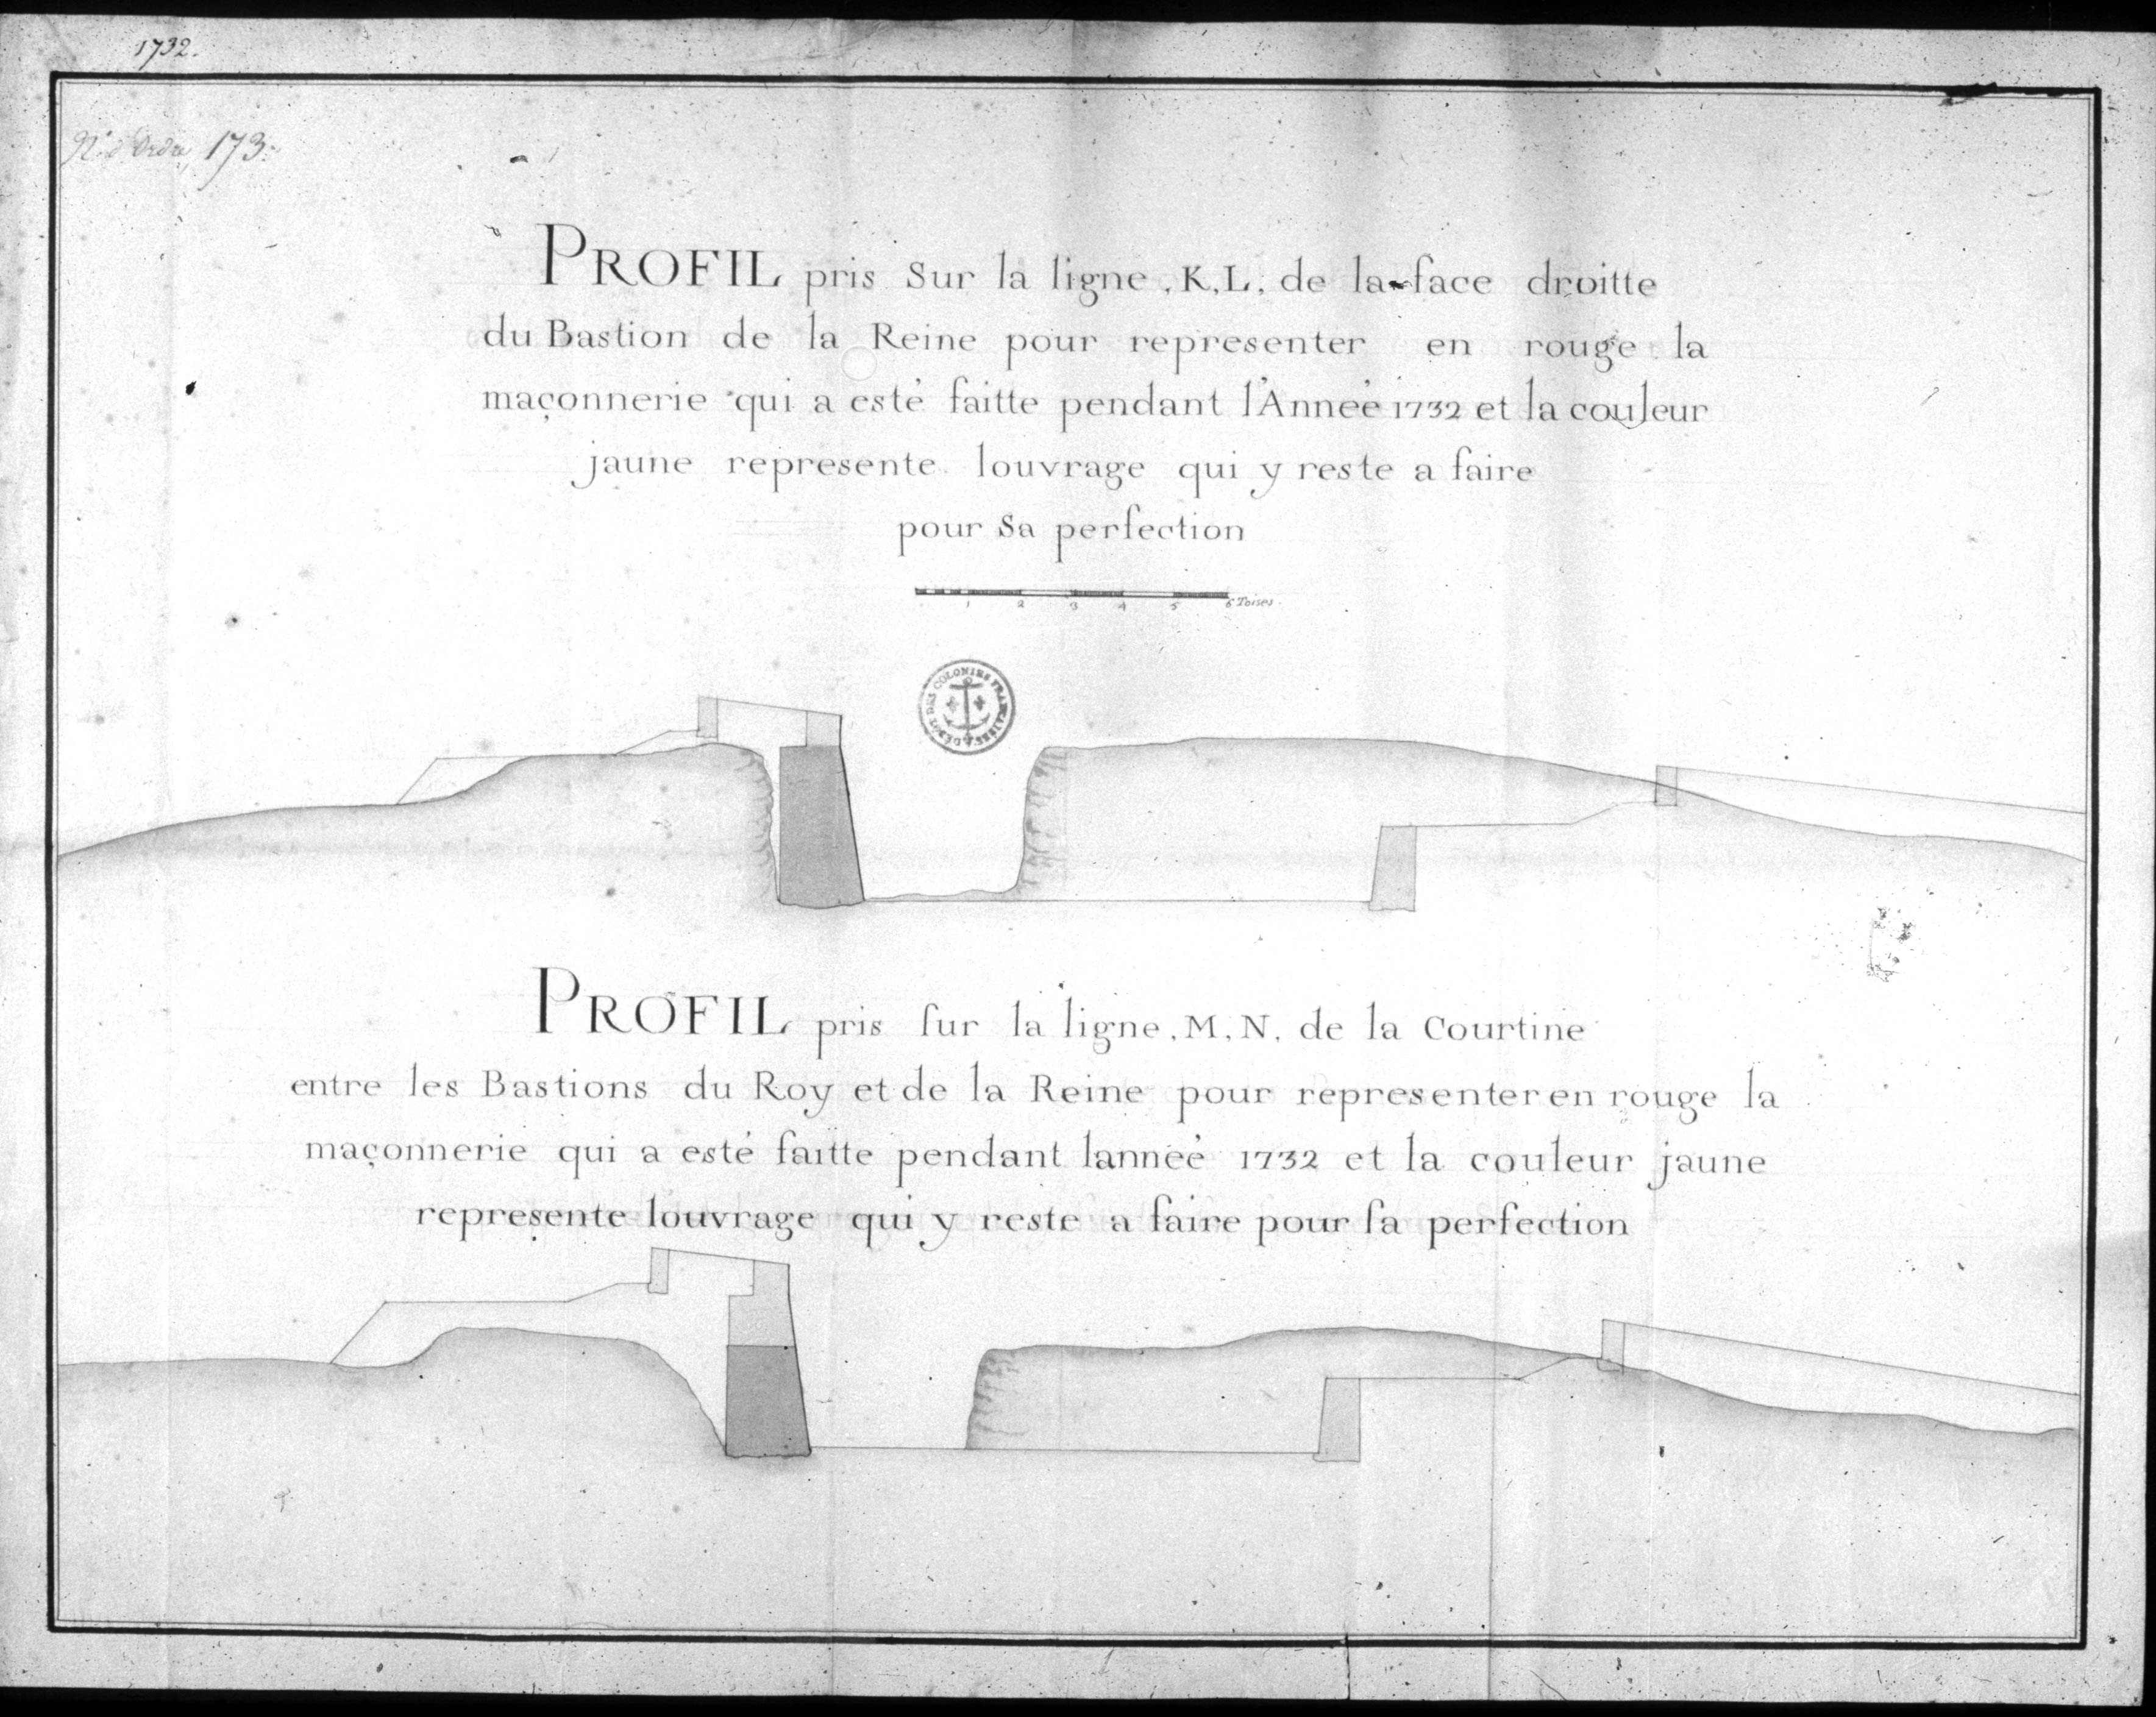 1732.
N.º d'Ordre, 173.
PROFIL pris Sur la ligne, K, L, de la face droitte
du Bastion de la Reine pour representer en rouge la
maçonnerie qui a esté faitte pendant l'Anneé 1732 et la couleur
jaune represente louvrage qui y reste a faire
pour Sa perfection
1 2 3 4 5 6 Toises.
DÉPÔT DES COLONIES FRANÇAISES
PROFIL pris sur la ligne, M, N, de la Courtine
entre les Bastions du Roy et de la Reine pour representer en rouge la
maçonnerie qui a esté faitte pendant lanneé 1732 et la couleur jaune
represente louvrage qui y reste a faire pour sa perfection